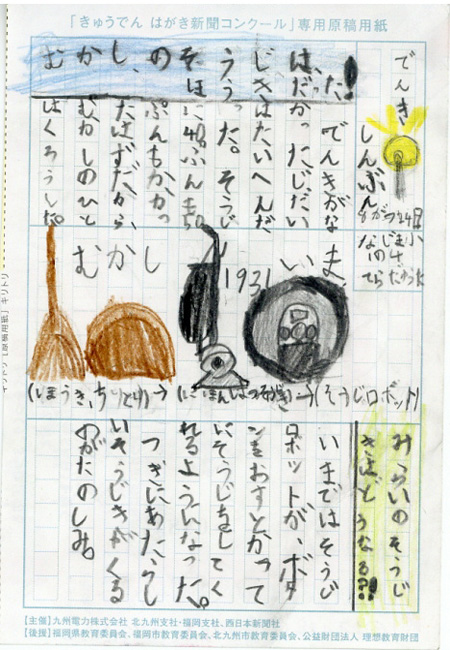 「きゅうでん はがき新聞コンクール」専用原稿用紙
でんき
しんぶん
8がつ24日
むかし
でんきがな
かったじだい
はたいへんだ
った。そうじ
に40ぷんも50
ぷんもかかっ
たはずだから、
むかしのひと
はくろうした。
むかし
1931
いま、
(ほうき、ちりとり)
(そうじロボット)
みらいのそうじ
きはどうなる?!
いまではそうじ
ロボットが、ボタ
ンをおすとかって
にそうじをしてく
れるようになった。
つぎにあたらし
いそうじきがくる
のがたのしみ。
【主催】九州電力株式会社 北九州支社・福岡支社、西日本新聞社
【後援】福岡県教育委員会、福岡市教育委員会、北九州市教育委員会、公益財団法人 理想教育財団